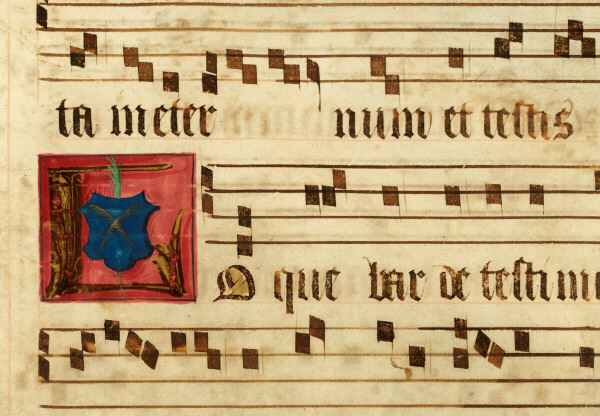 ta in eter num et teſtis
L O que bar de teſtim